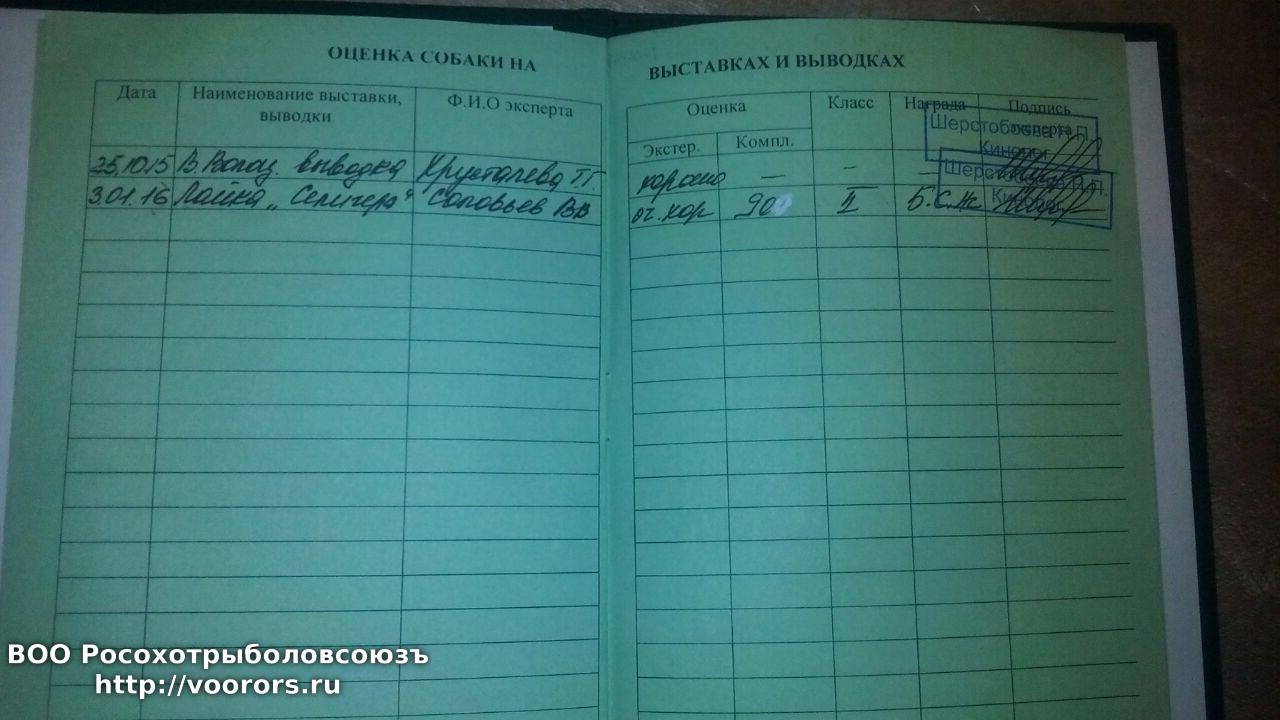 ОЦЕНКА СОБАКИ НА ВЫСТАВКАХ И ВЫВОДКАХ
Дата Наименование выставки, выводки Ф.И.О эксперта Оценка Класс Награда Подпись эксперта
Экстер. Компл.
25.10.15 В. Волоц. выводка Хрусталева Т.Г. хорошо — — —
3.01.16 Лайка „Селигер“ Соловьев В.В. оч. хор 90 II Б.С.М.
Кинолог
ВОО Росохотрыболовсоюзъ
http://voorors.ru